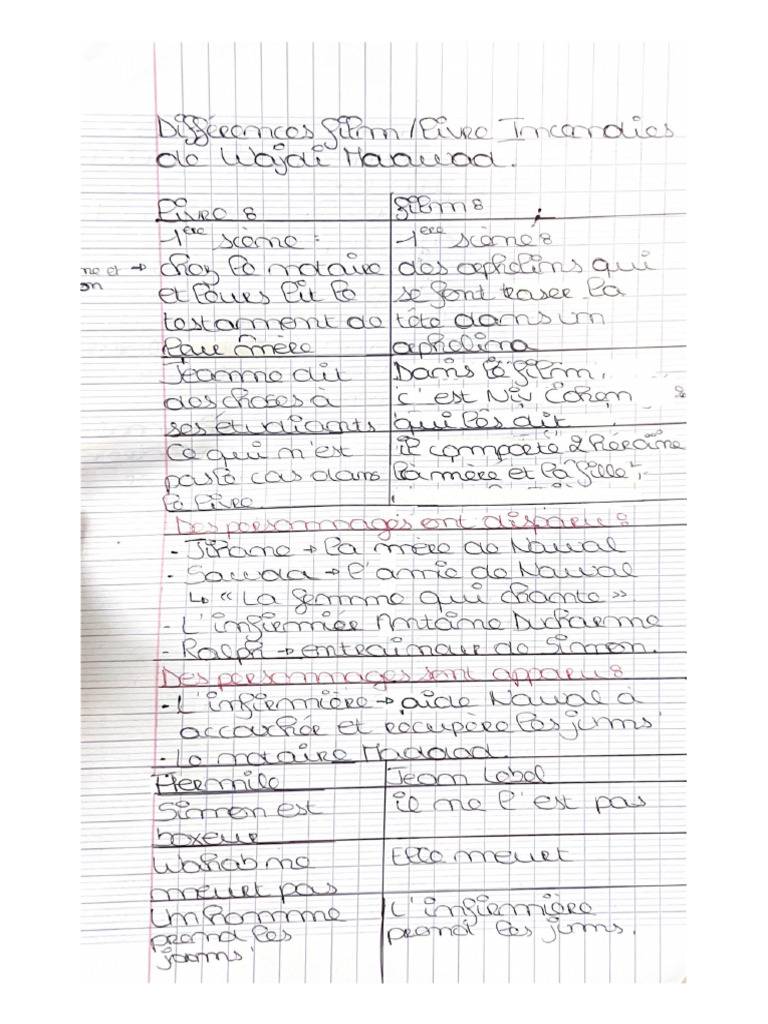 Différences film / livre Incendies
de Wajdi Maawad.
Livre :
film :
1ère scène :
1ère scène :
chez le notaire
des orphelins qui
et leurs lit le
se font raser la
testament de
tête dans un
leur mère
orphelina
Jeanne dit
Dans le film,
des choses à
c'est Niv Cohen
ses étudiants
qui les dit
Ce qui n'est
il comporte 2 héroïne
pas le cas dans
la mère et la fille
le livre
Des personnages ont disparu :
- Jihane → la mère de Nawal
- Sawda → l'amie de Nawal
↳ « La femme qui chante »
- L'infirmier Antoine Ducharme
- Ralph → entraineur de Simon.
Des personnages sont apparu :
- L'infirmière → aide Nawal à
accouchée et récupère les jims
- Le notaire Madad.
Hermile
Jean Lebel
Simon est
il ne l'est pas
boxeur
Wahab ne
Elle meurt
meurt pas
Un homme
L'infirmière
prend les
prend les jims.
jaoms